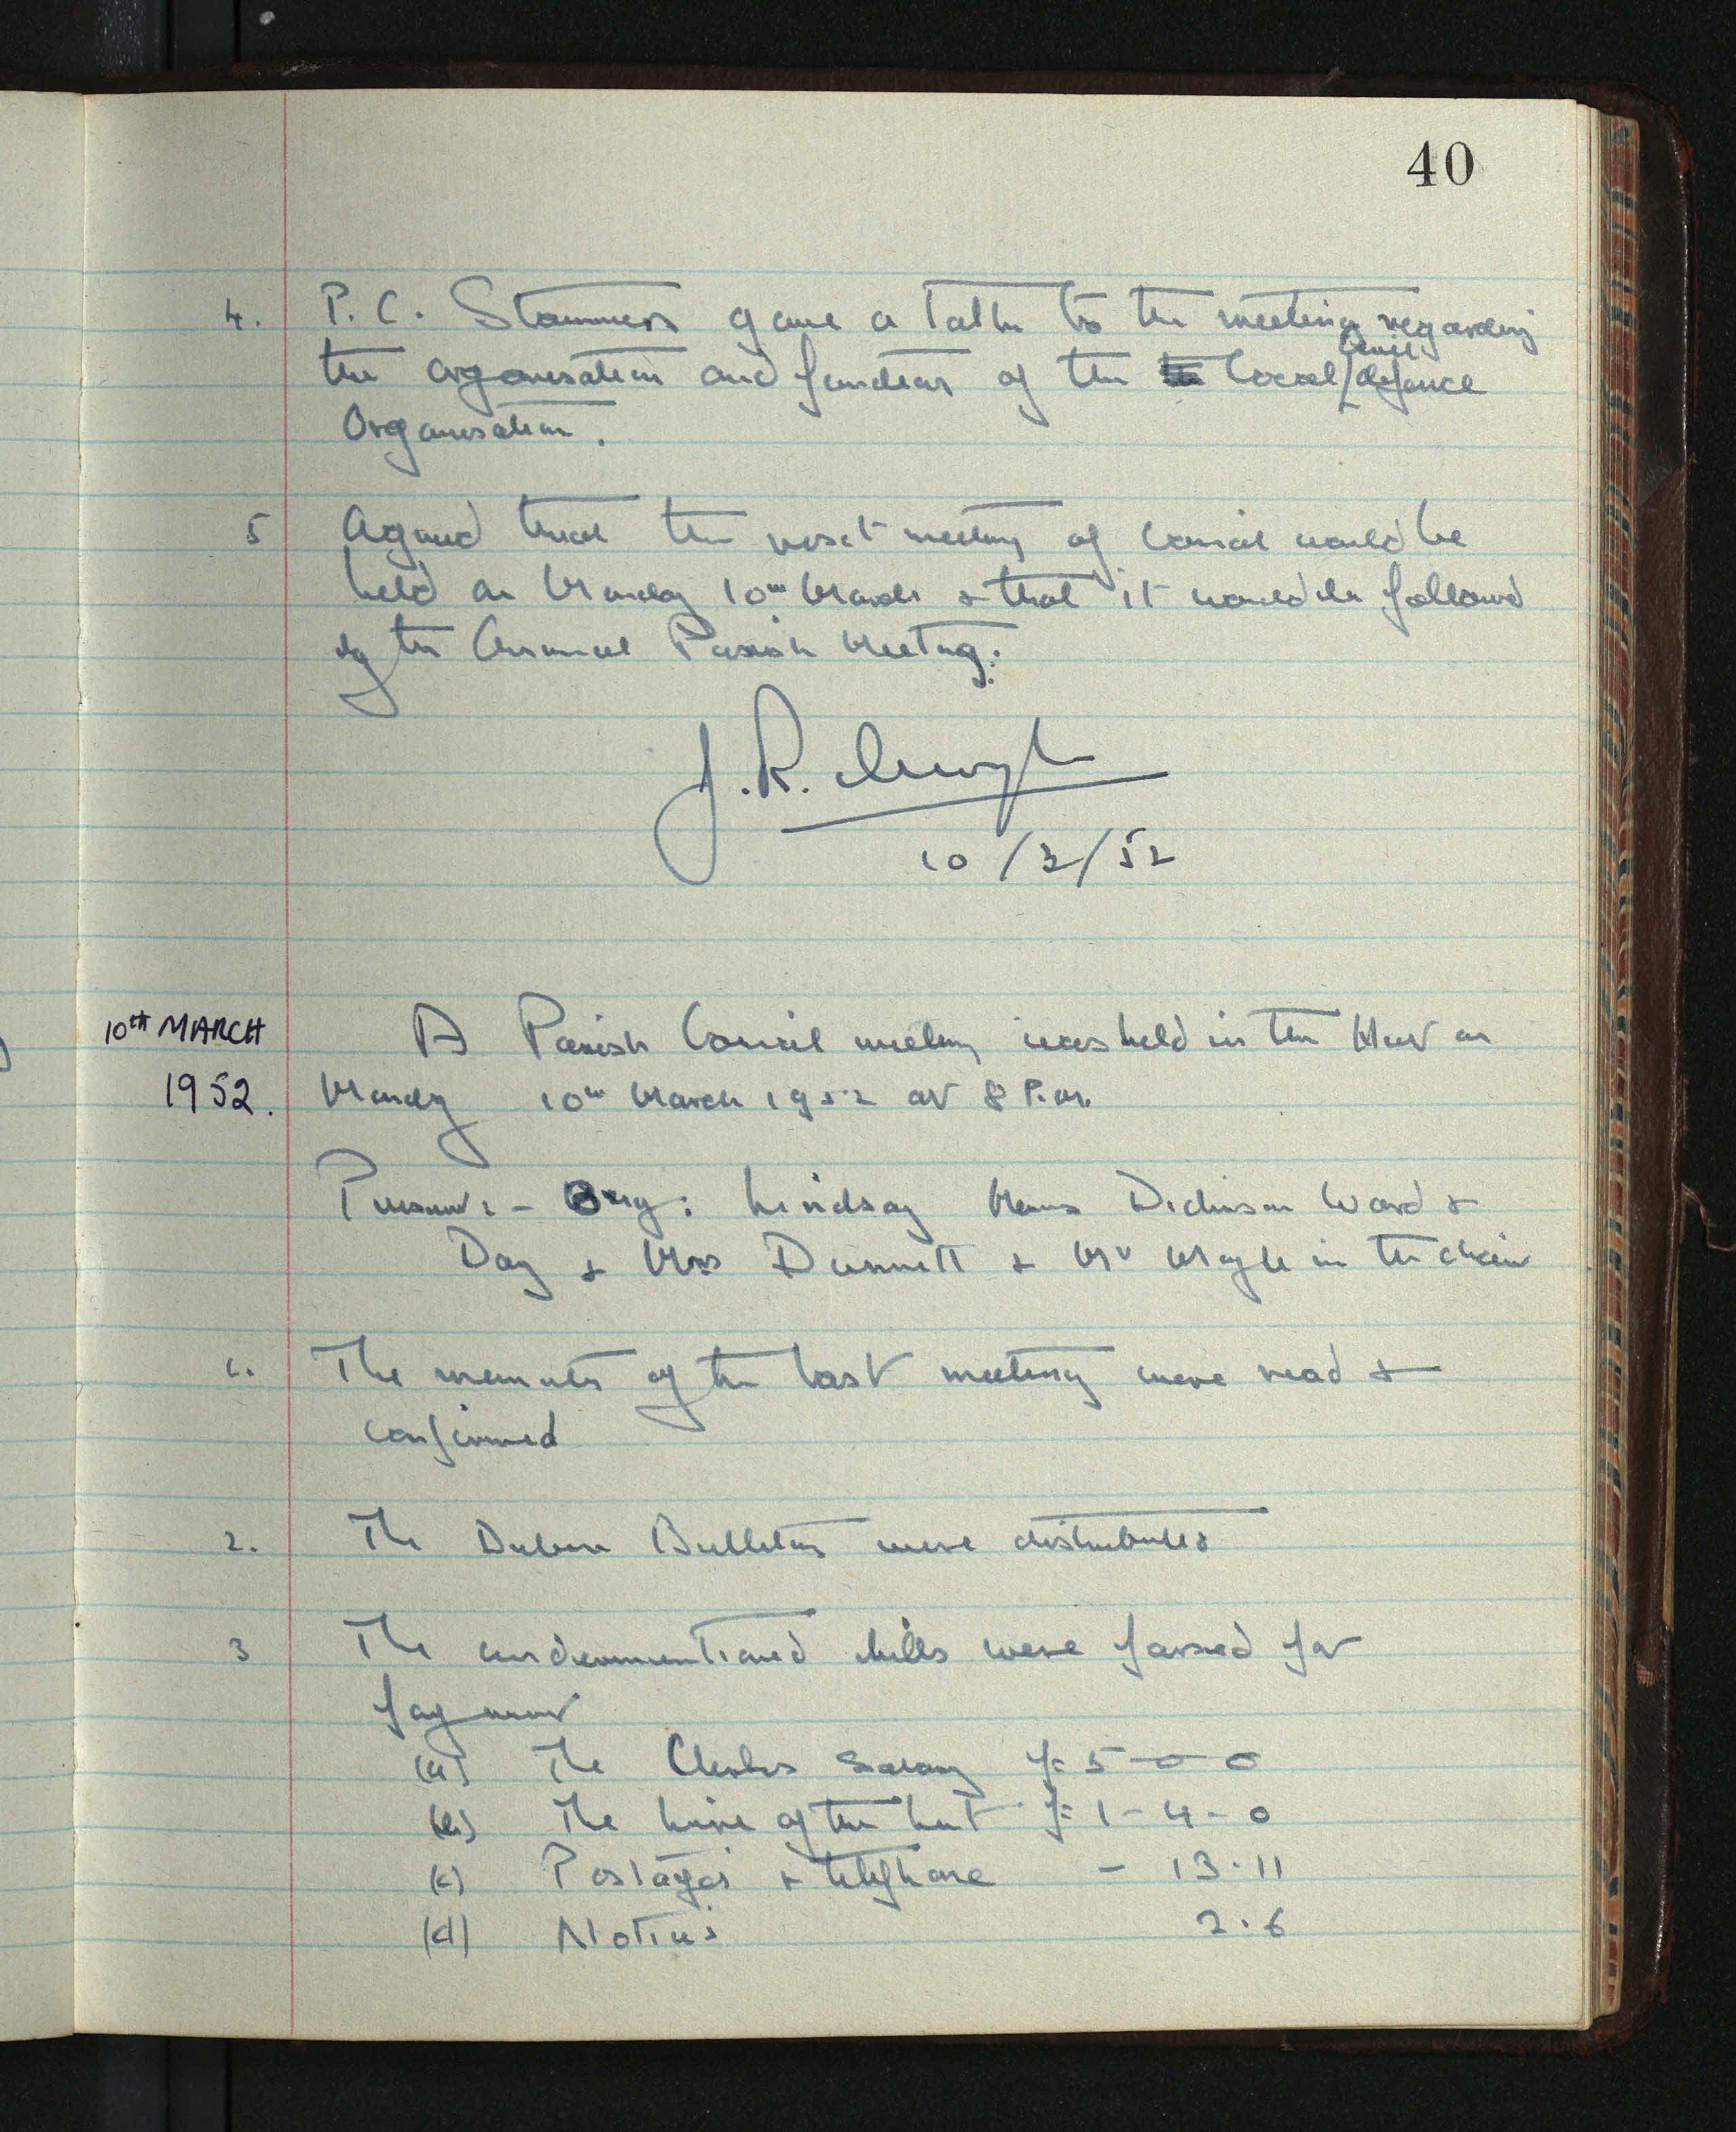 40
4. P.C. Stammers gave a talk to the meeting regarding
the organisation and functions of the local civil defence
Organisation.
5 Agreed that the next meeting of Council would be
held on Monday 10th March & that it would be followed
by the Annual Parish Meeting.
J.R.
10/3/52
10TH MARCH
1952.
A Parish Council meeting was held in the Hut on
Monday 10th March 1952 at 8 P.m.
Present:- Brig: Lindsay Messrs Dickinson Ward &
Day & Mrs Dunnett & Mr in the chair
1. The minutes of the last meeting were read &
confirmed
2. The Bulletins were distributed
3 The undermentioned bills were passed for
payment
(a) The Clerks Salary £5-0-0
(b) The hire of the hut £1-4-0
(c) Postages & telephone - 13.11
(d) Notices 2.6